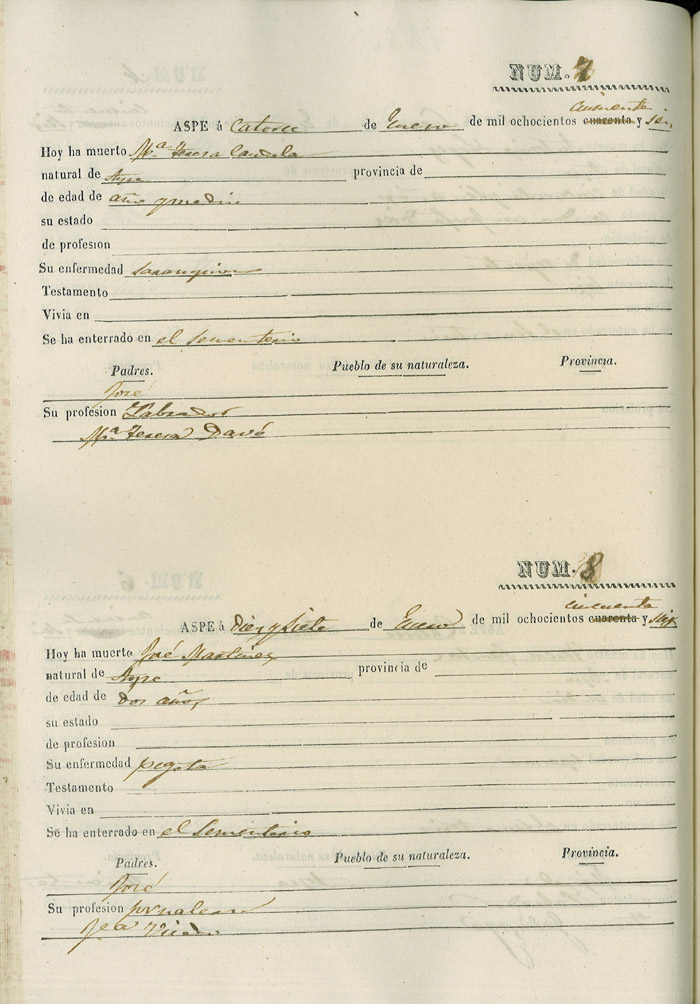 NUM. 7
cincuenta
ASPE á Catorce de Enero de mil ochocientos cuarenta y seis
Hoy ha muerto M.ª Teresa Candela
natural de Aspe provincia de
de edad de año y medio
su estado
de profesion
Su enfermedad saranpion
Testamento
Vivia en
Se ha enterrado en el Sementerio
Padres. Pueblo de su naturaleza. Provincia.
José
Su profesion Labrador
Mª Teresa Davó
NUM. 8
cincuenta
ASPE á Diez y Siete de Enero de mil ochocientos cuarenta y seis
Hoy ha muerto José Martinez
natural de Aspe provincia de
de edad de dos años
su estado
de profesion
Su enfermedad pigota
Testamento
Vivia en
Se ha enterrado en el Sementerio
Padres. Pueblo de su naturaleza. Provincia.
José
Su profesion jornalero